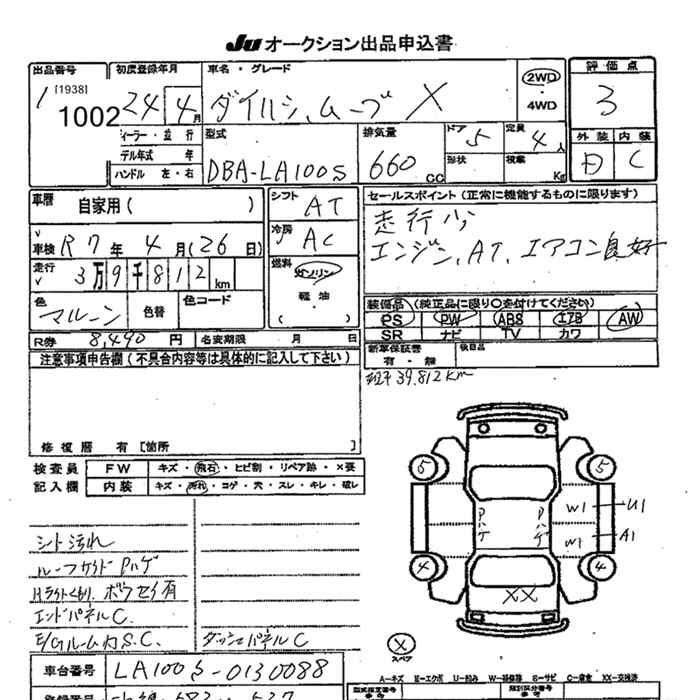 Ju オークション出品申込書
出品番号 初度登録年月 車名・グレード 評価点
[1938]
1 1002 24 4月 ダイハツ、ムーブ X 2WD・4WD 3
ディーラー・並行 型式 排気量 ドア 5 定員 4人 外装 内装
モデル年式 年 DBA-LA100S 660 CC 形状 積載 Kg D C
ハンドル 左・右
車歴 自家用( ) シフト AT セールスポイント(正常に機能するものに限ります)
車検 R7年 4月(26日) 冷房 AC 走行少
エンジン、AT、エアコン良好
走行 3万9千812km 燃料 ガソリン 軽油・( )
色 マルーン 色替 色コード 装備品(純正品に限り○を付けてください)
PS PW ABS エアB AW
SR ナビ TV カワ
R券 8,490円 名変期限 月 日 新車保証書 有・無 後日品
注意事項申告欄(不具合内容等は具体的に記入して下さい)
39.812km
修復歴 有[箇所
検査員 FW キズ・飛石・ヒビ割・リペア跡・×要
記入欄 内装 キズ・汚れ・コゲ・穴・スレ・キレ・破レ
5 5
Pハゲ Pハゲ W1 U1
W1 A1
4 4
XX
シート汚れ
ルーフサイドPハゲ
Hライトくもり、ボウセイ有
エンドパネルC
E/Gルーム内S.C. ダッシュパネルC
X スペア
A-キズ E-エクボ U-凹み W-補修跡 S-サビ C-腐食 XX-交換済
車台番号 LA100S-0130088
型式指定番号 類別区分番号
参考 参考
登録番号